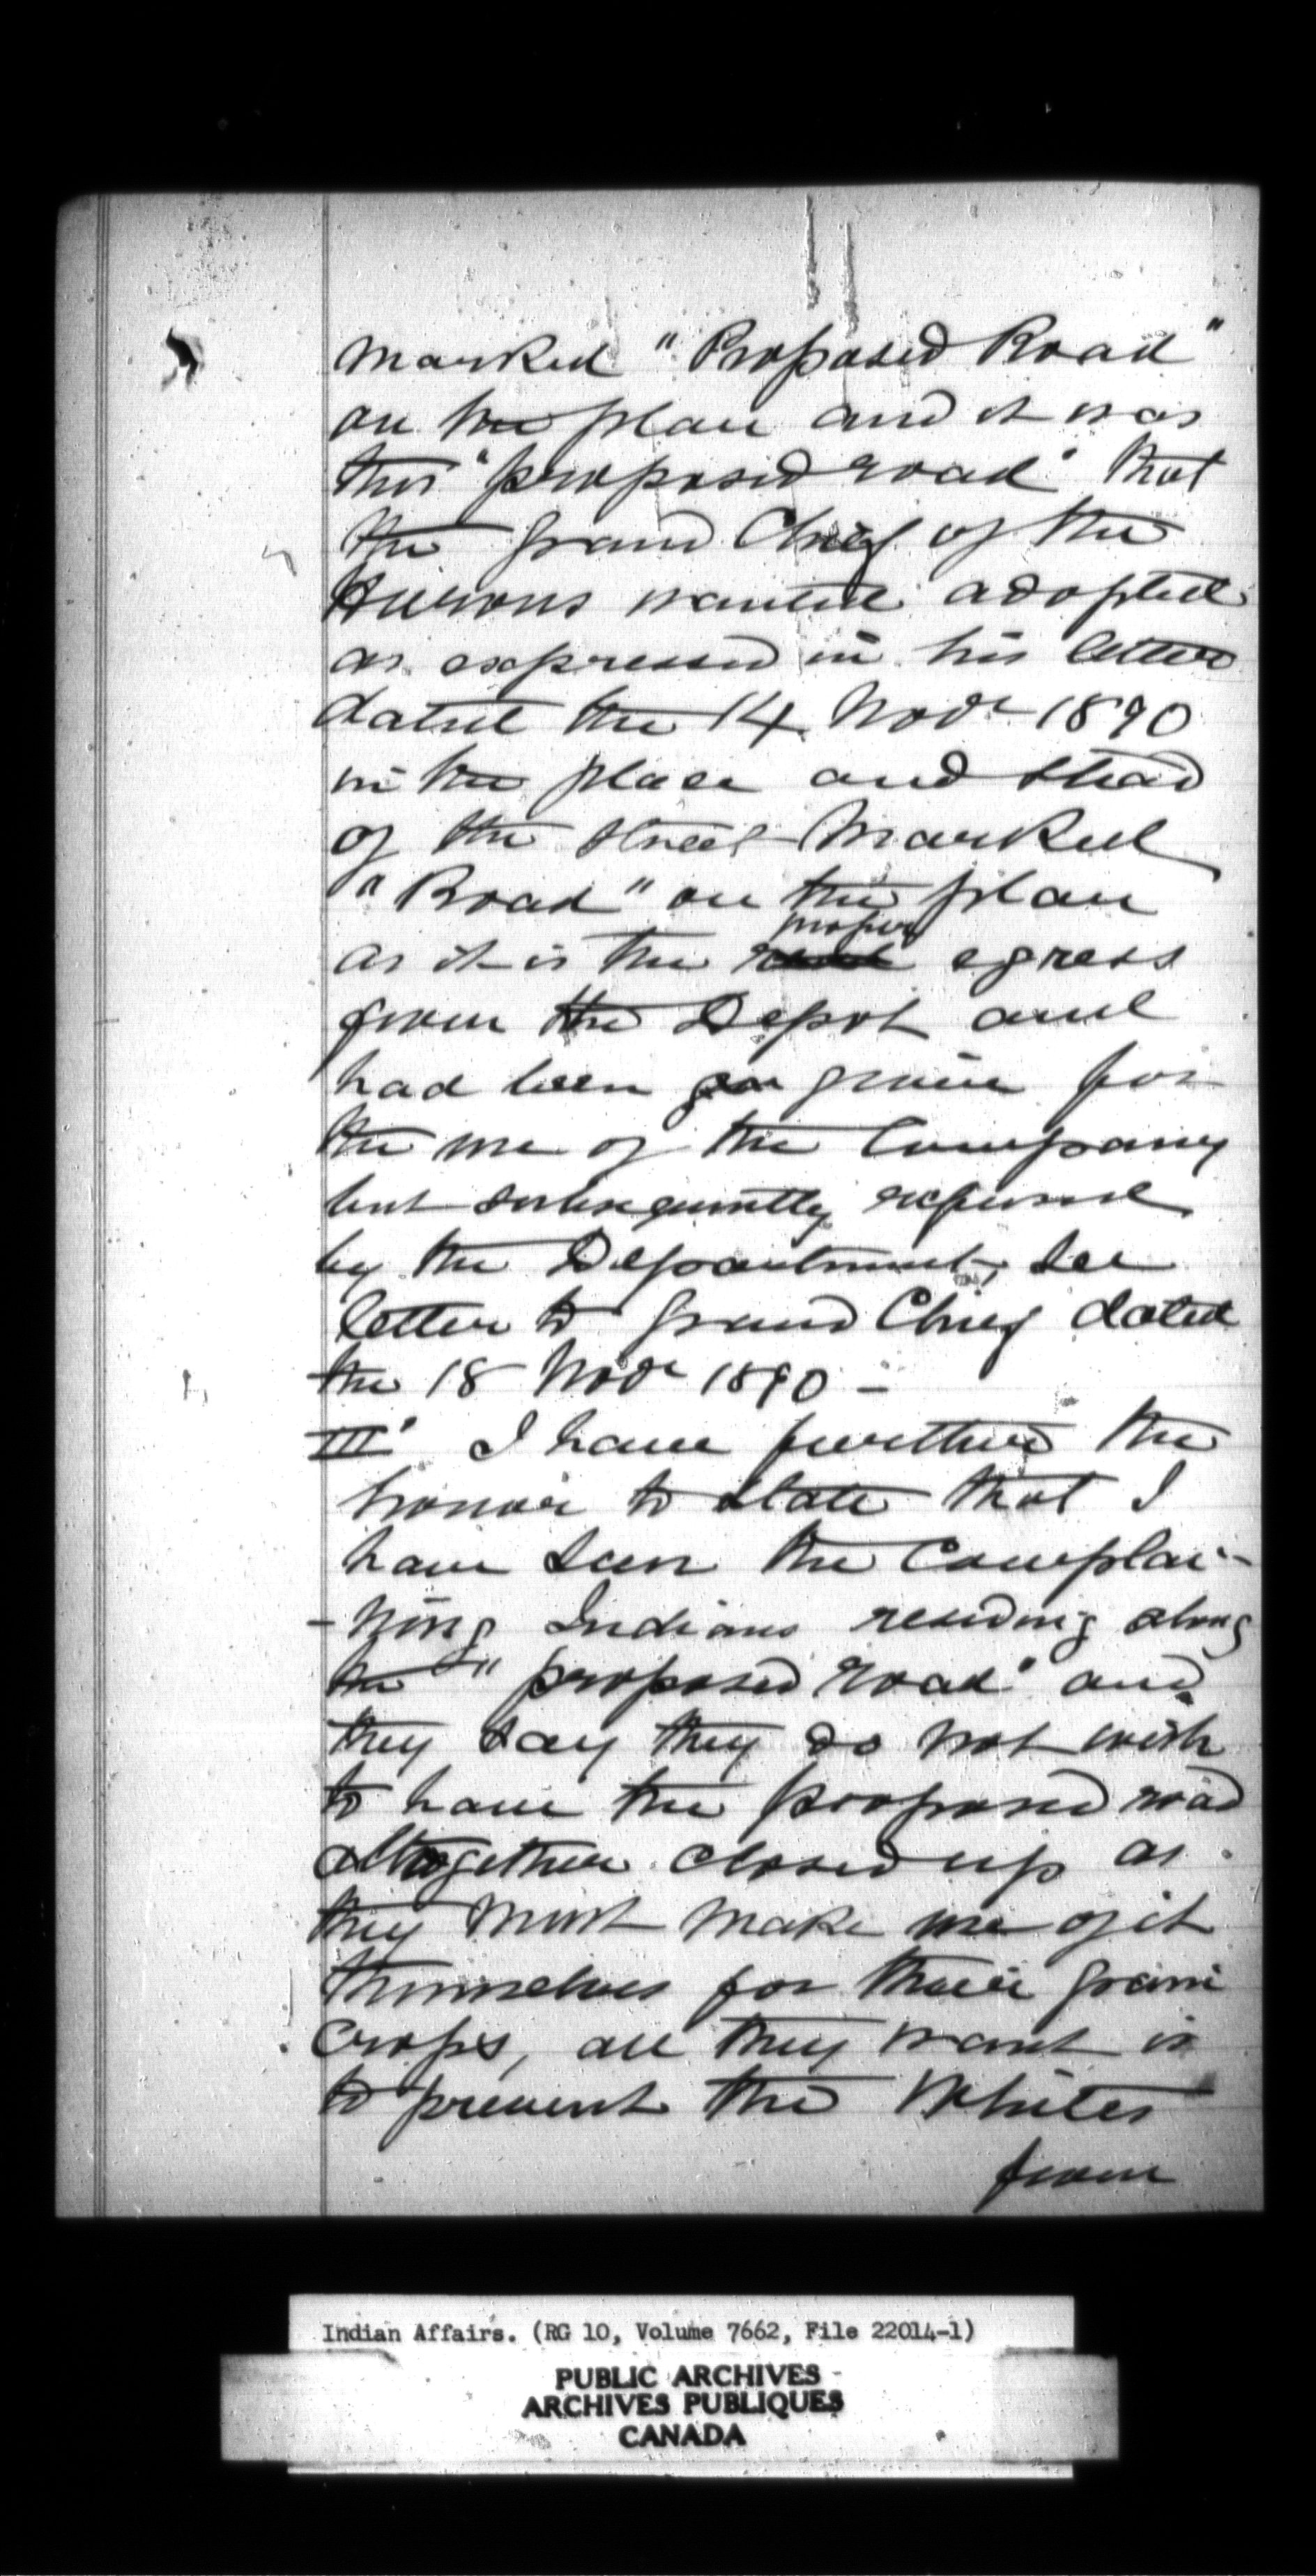 marked "Proposed Road"
on the plan and it was
this "proposed road" that
the Grand Chief of the
Hurons wanted adopted
as expressed in his letter
dated the 14 Novr 1890
in the place and stead
of the street marked
"Road" on the plan
proper
as it is the egress
from the Depot and
had been given for
the use of the Company
but subsequently refused
by the Department, see
letter to Grand Chief dated
the 18 Novr 1890 -
III° I have further the
honor to state that I
have seen the Complai-
-ning Indians residing along
the "proposed road" and
they say they do not wish
to have the proposed road
altogether closed up as
they must make use of it
themselves for their grain
crops, all they want is
to prevent the Whites
from
Indian Affairs. (RG 10, Volume 7662, File 22014-1)
PUBLIC ARCHIVES
ARCHIVES PUBLIQUES
CANADA